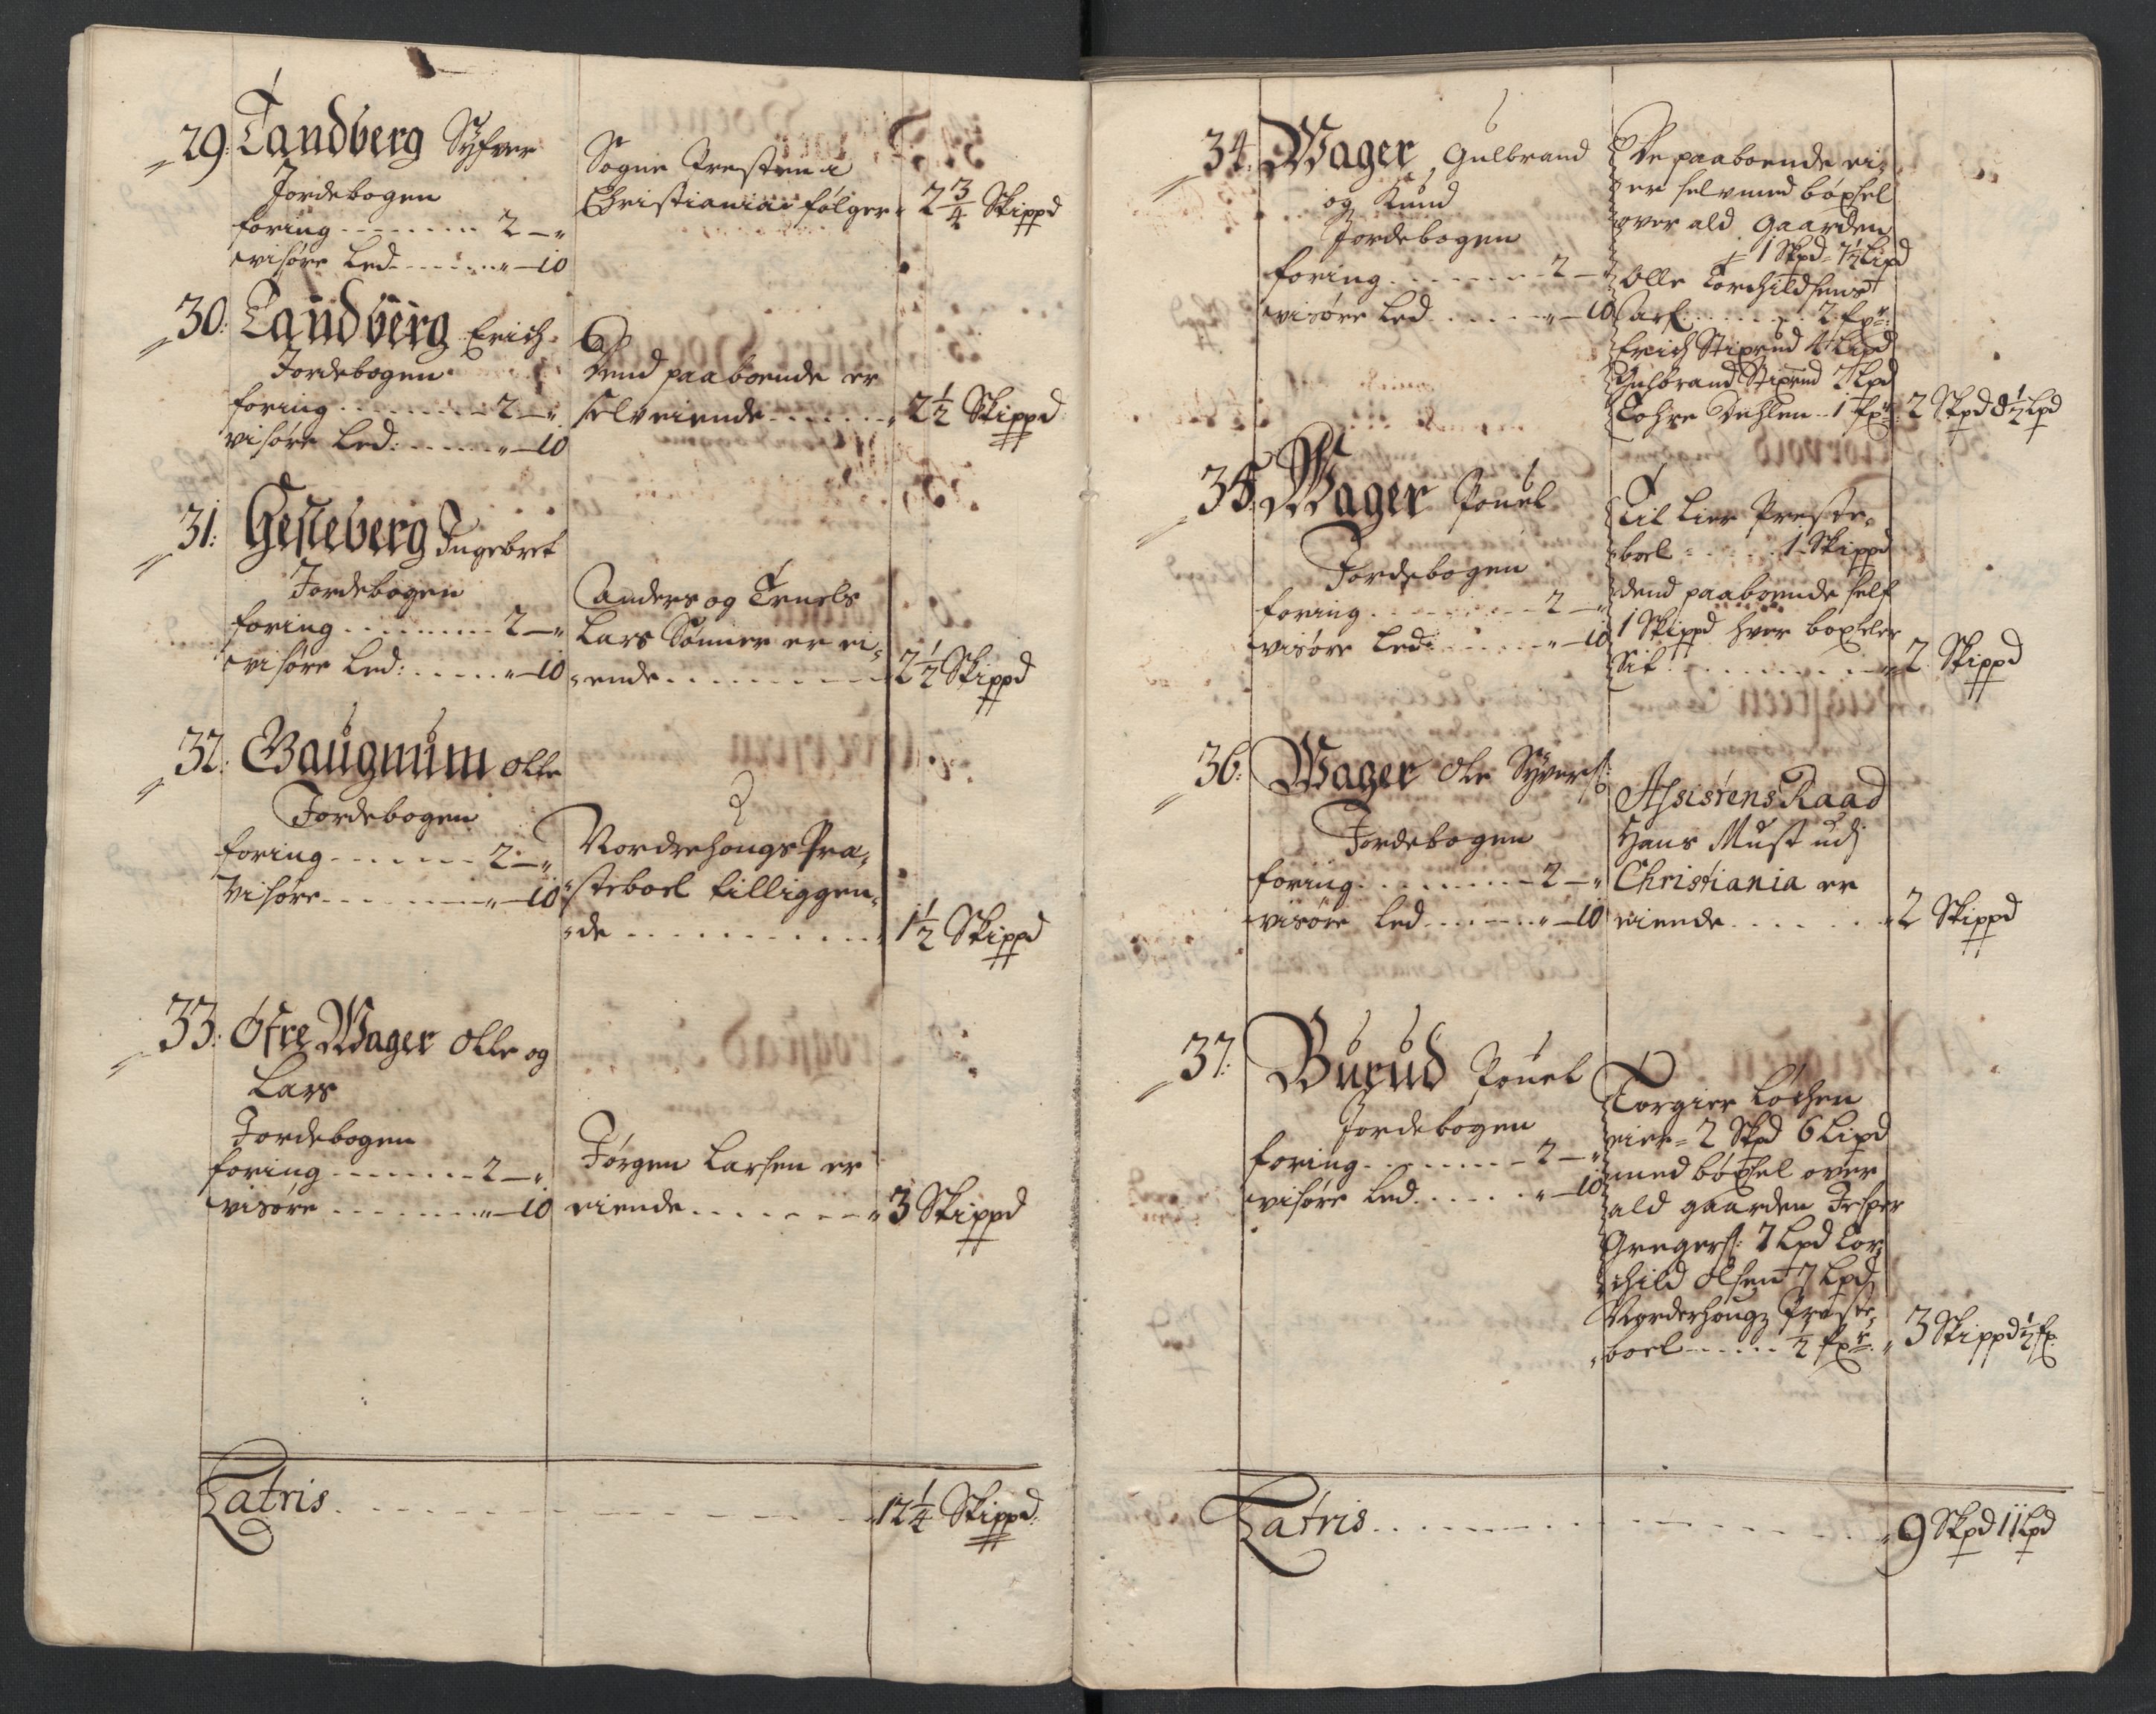 29: Tandberg Syfver
Jordebogen
foring - - - - - - - - 2 - "
visøre Led - - - - - - " - 10
Sogne Presten i
Christiania følger " 2 3/4 Skippd
30: Tandberg Erich
Jordebogen
foring - - - - - - - - 2 - "
visøre Led: - - - - - - " - 10
Dend paaboende er
selveiende - - - - - - - " 2 1/2 Skippd
31: Gesseberg Ingebret
Jordebogen
foring . . . . . . . . . 2 - "
visøre Led: . . . . . " - 10
Anders og Truels
Lars Sønner er ei-
ende . . . . . . . . . . 2 1/2 Skippd
32: Gaugnum Olle
Jordebogen
foring - - - - - - - 2 - "
Visøre - - - - - - - " - 10
Nordrehougs Præ-
steboel tilliggen-
de . . . . . . . . . . . . " 1 1/2 Skippd
33: Øfre Wager Olle og
Lars
Jordebogen
foring - - - - - - - - 2 - "
visøre . . . . . . . . " - 10
Jørgen Larsen er
eiende . . . . . . . . " 3 Skippd
Latris . - - - - - - - - - - - - - " 12 1/4 Skippd:
34: Wager Gulbrand
og Knud
Jordebogen
foring . . . . . . . . 2 - "
visøre Led . . . . . . " - 10
De paaboende ei-
er selv med bøxsel
over ald Gaarden
1 Skpd 7 1/2 Lipd
Olle Torchildsens
arf: . . . . . . . 2 fxr:
Erich Stixrud 4 Lipd
Gulbrand Stixrud 2 Lpd
Tohre Dehlen - 1 fxr: 2 Skpd 8 1/2 Lpd
35: Wager Pouel
Jordebogen
foring . . . . . . . . 2 - "
visøre Led: . . . . . . " - 10
Til Lier Preste-
boel - . . . . . 1 Skippd
dend paaboende self
1 Skippd hver boxseler
Sit . . . . . . . . . . " 2 Skippd
36: Wager Ole Syvers:
Jordebogen
foring . . . . . . . . . 2 - "
visøre Led . . . . . . " - 10
Assisørens Raad
Hans Must udj
Christiania er
eiende . . . . . . . " 2 Skippd
37: Burud Pouel
Jordebogen
foring . . . . . . . . 2 - "
visøre Led . . . . . . " - 10
Torgier Løchen
eier = 2 Skpd 6 Lipd
med bøxsel over
ald gaarden Jesper
Gregers: 7 Lpd Tor-
child Olsen 7 Lpd
Norderhougz Præste-
boel - - - - - 1/2 fxr: " 3 Skippd 1/2 fx:
Latris . . - - - - - - - - - - - - " 9 Skpd 11 Lpd